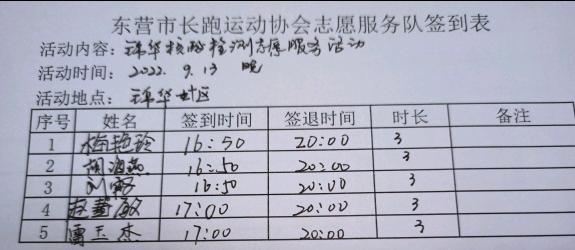 东营市长跑运动协会志愿服务队签到表
活动内容：锦华核酸检测志愿服务活动
活动时间：2022.9.13 晚
活动地点：锦华社区
序号 姓名 签到时间 签退时间 时长 备注
1 梅艳玲 16:50 20:00 3
2 胡 16:50 20:00 3
3 刘 16:50 20:00 3
4 赵 敏 17:00 20:00 3
5 雷玉杰 17:00 20:00 3